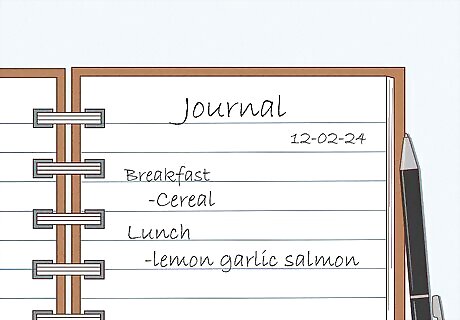 Journal
12-02-24
Breakfast
-Cereal
Lunch
-lemon garlic salmon